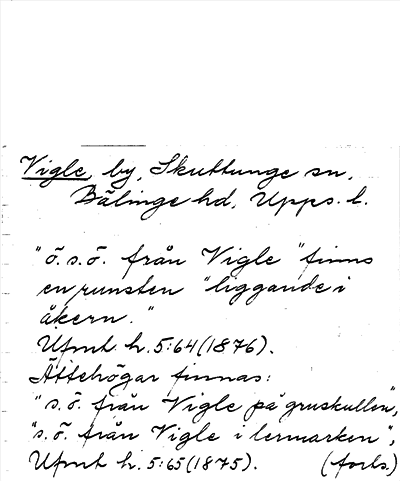 Vigle, by, Skuttunge sn,
Bälinge hd, Upps. l.
"ö.s.ö. från Vigle" finns
en runsten "liggande i
åkern."
Ufmt h. 5:64 (1876).
Ättehögar finnas:
"s.ö. från Vigle på gruskullen",
"s.ö. från Vigle i lermarken",
Ufmt h. 5:65 (1875). (forts.)